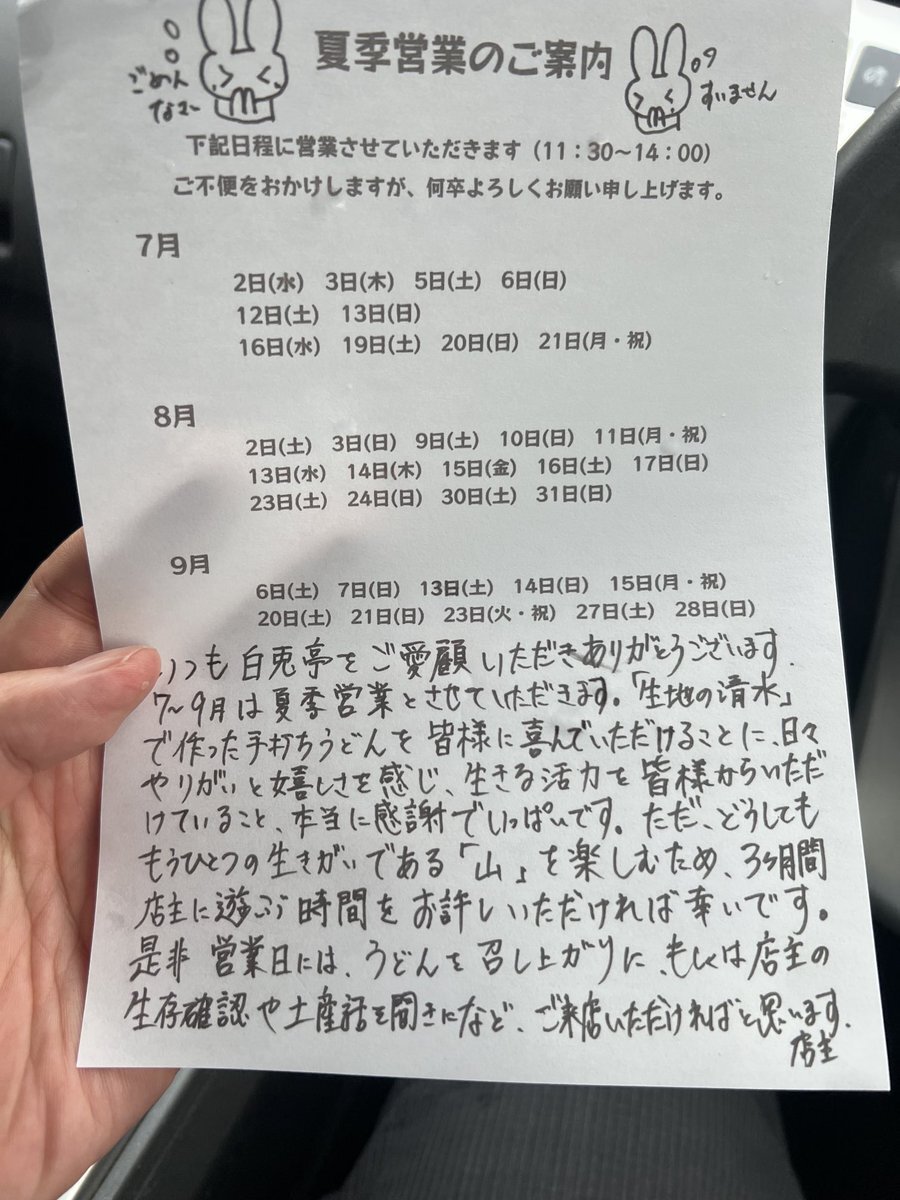 夏季営業のご案内
ごめん
なさい
すいません
下記日程に営業させていただきます（11：30～14：00）
ご不便をおかけしますが、何卒よろしくお願い申し上げます。
7月
2日(水) 3日(木) 5日(土) 6日(日)
12日(土) 13日(日)
16日(水) 19日(土) 20日(日) 21日(月・祝)
8月
2日(土) 3日(日) 9日(土) 10日(日) 11日(月・祝)
13日(水) 14日(木) 15日(金) 16日(土) 17日(日)
23日(土) 24日(日) 30日(土) 31日(日)
9月
6日(土) 7日(日) 13日(土) 14日(日) 15日(月・祝)
20日(土) 21日(日) 23日(火・祝) 27日(土) 28日(日)
いつも白兎亭をご愛顧いただきありがとうございます.
7〜9月は夏季営業とさせていただきます。「生地の清水」
で作った手打ちうどんを皆様に喜んでいただけることに、日々
やりがいと嬉しさを感じ、生きる活力を皆様からいただ
けていること、本当に感謝でいっぱいです。ただ、どうしても
もうひとつの生きがいである「山」を楽しむため、3ヶ月間
店主に遊ぶ時間をお許しいただければ幸いです。
是非営業日には、うどんを召し上がりに、もしくは店主の
生存確認や土産話を聞きになど、ご来店いただければと思います.
店主